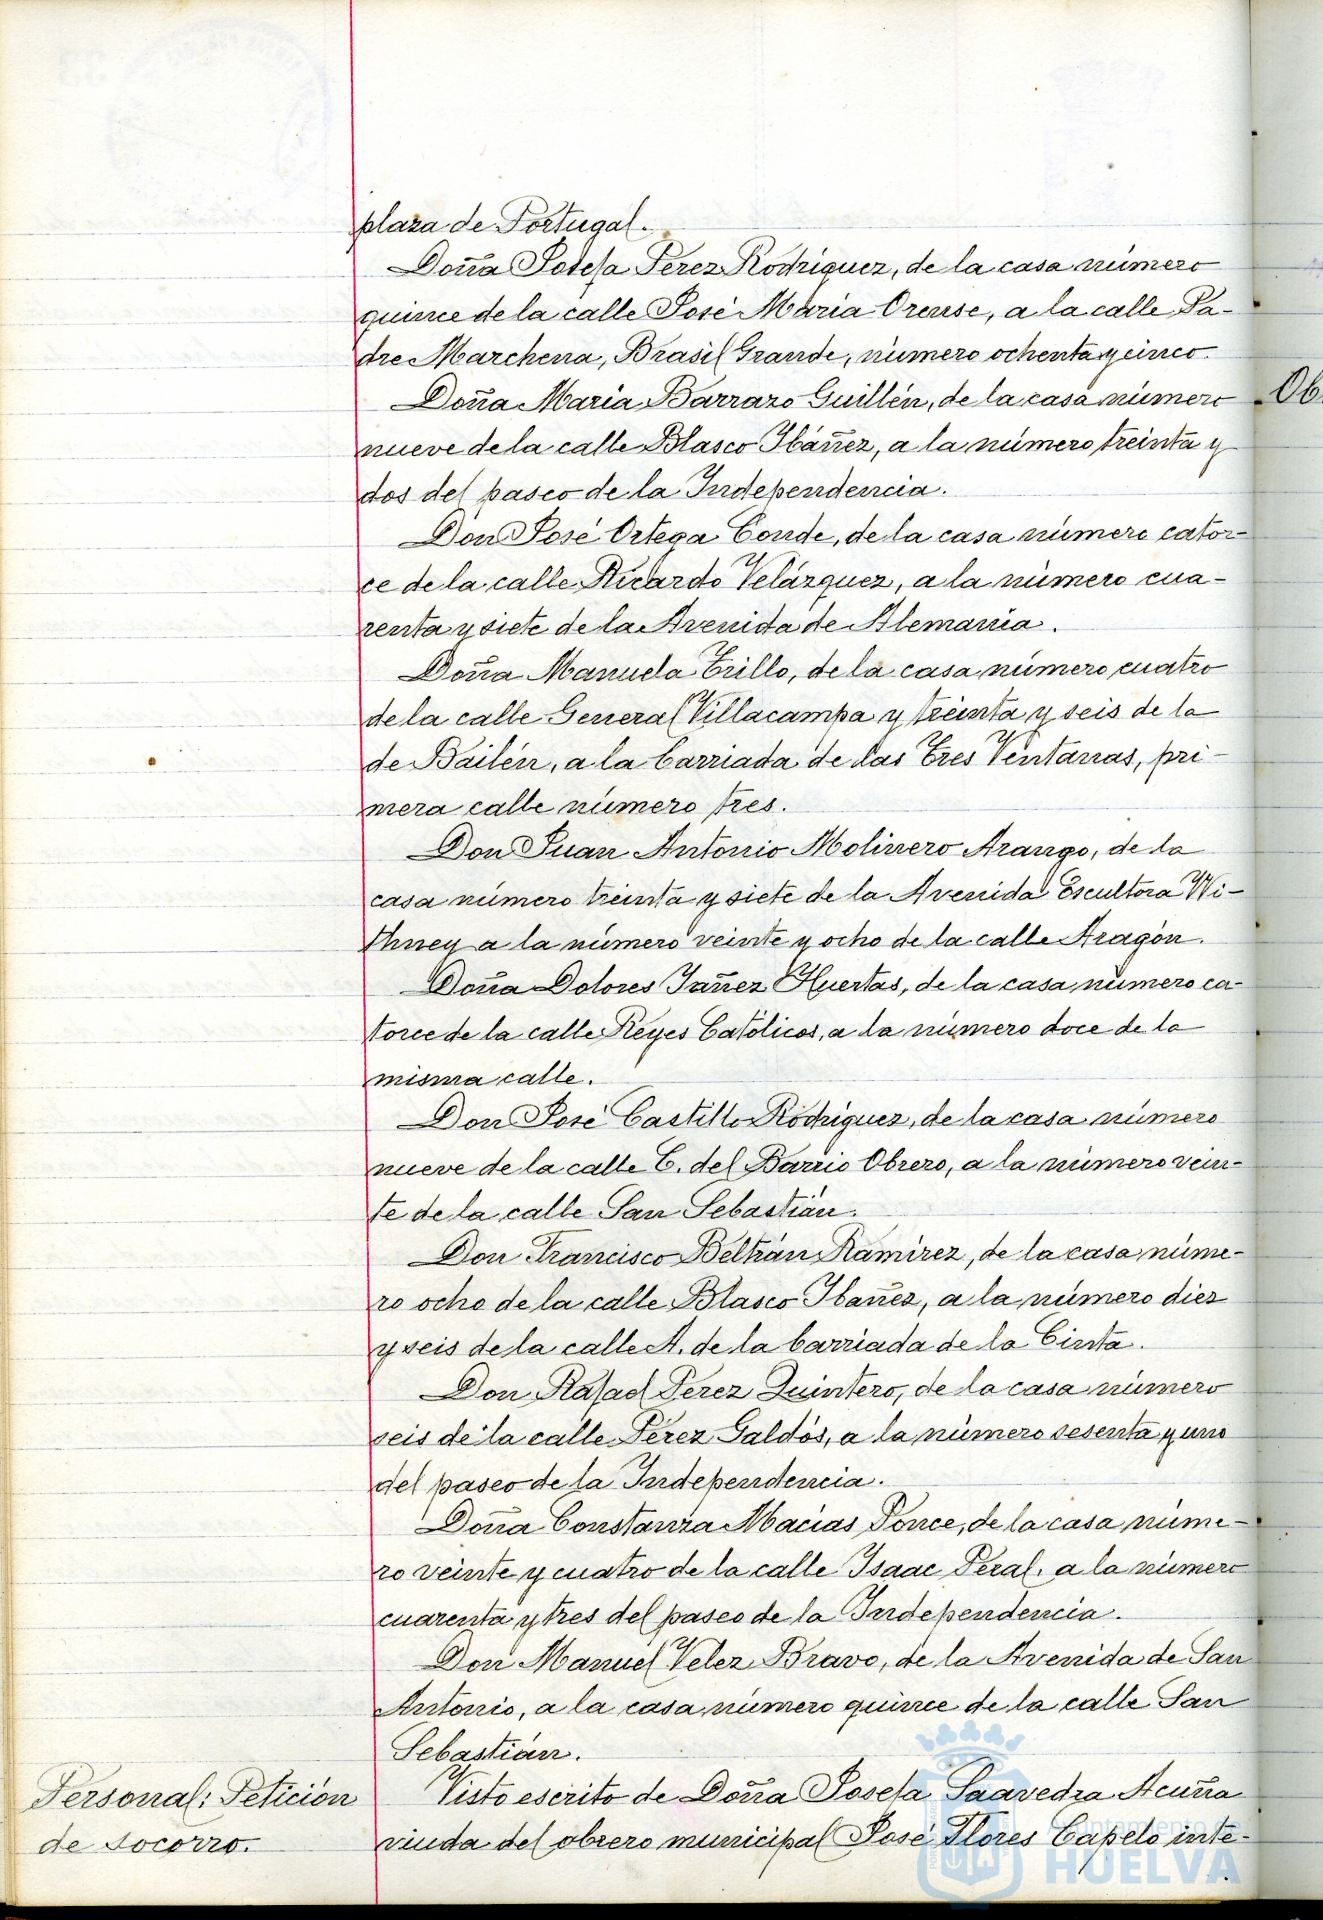 plaza de Portugal.
Doña Josefa Perez Rodriguez, de la casa número
quince de la calle José Maria Orense, a la calle Pa-
dre Marchena, Brasil Grande, número ochenta y cinco.
Doña Maria Barrazo Guillén, de la casa número
nueve de la calle Blasco Ibáñez, a la número treinta y
dos del paseo de la Independencia.
Don José Ortega Conde, de la casa número cator-
ce de la calle Ricardo Velázquez, a la número cua-
renta y siete de la Avenida de Alemania.
Doña Manuela Trillo, de la casa número cuatro
de la calle General Villacampa y treinta y seis de la
de Bailén, a la barriada de las Tres Ventanas, pri-
mera calle número tres.
Don Juan Antonio Molinero Arango, de la
casa número treinta y siete de la Avenida Escultora Wi-
thney a la número veinte y ocho de la calle Aragón.
Doña Dolores Jañez Huertas, de la casa número ca-
torce de la calle Reyes Católicos, a la número doce de la
misma calle.
Don José Castillo Rodriguez, de la casa número
nueve de la calle C. del Barrio Obrero, a la número vein-
te de la calle San Sebastián.
Don Francisco Beltrán Ramirez, de la casa núme-
ro ocho de la calle Blasco Ibañez, a la número diez
y seis de la calle A. de la barriada de la Cinta.
Don Rafael Perez Quintero, de la casa número
seis de la calle Pérez Galdós, a la número sesenta y uno
del paseo de la Independencia.
Doña Constanza Macías Ponce, de la casa núme-
ro veinte y cuatro de la calle Isaac Peral, a la número
cuarenta y tres del paseo de la Independencia.
Don Manuel Velez Bravo, de la Avenida de San
Antonio, a la casa número quince de la calle San
Sebastián.
Personal: Petición
de socorro.
Visto escrito de Doña Josefa Saavedra Acuña
viuda del obrero municipal José Flores Capelo inte-
Ob.
Ayuntamiento de
HUELVA